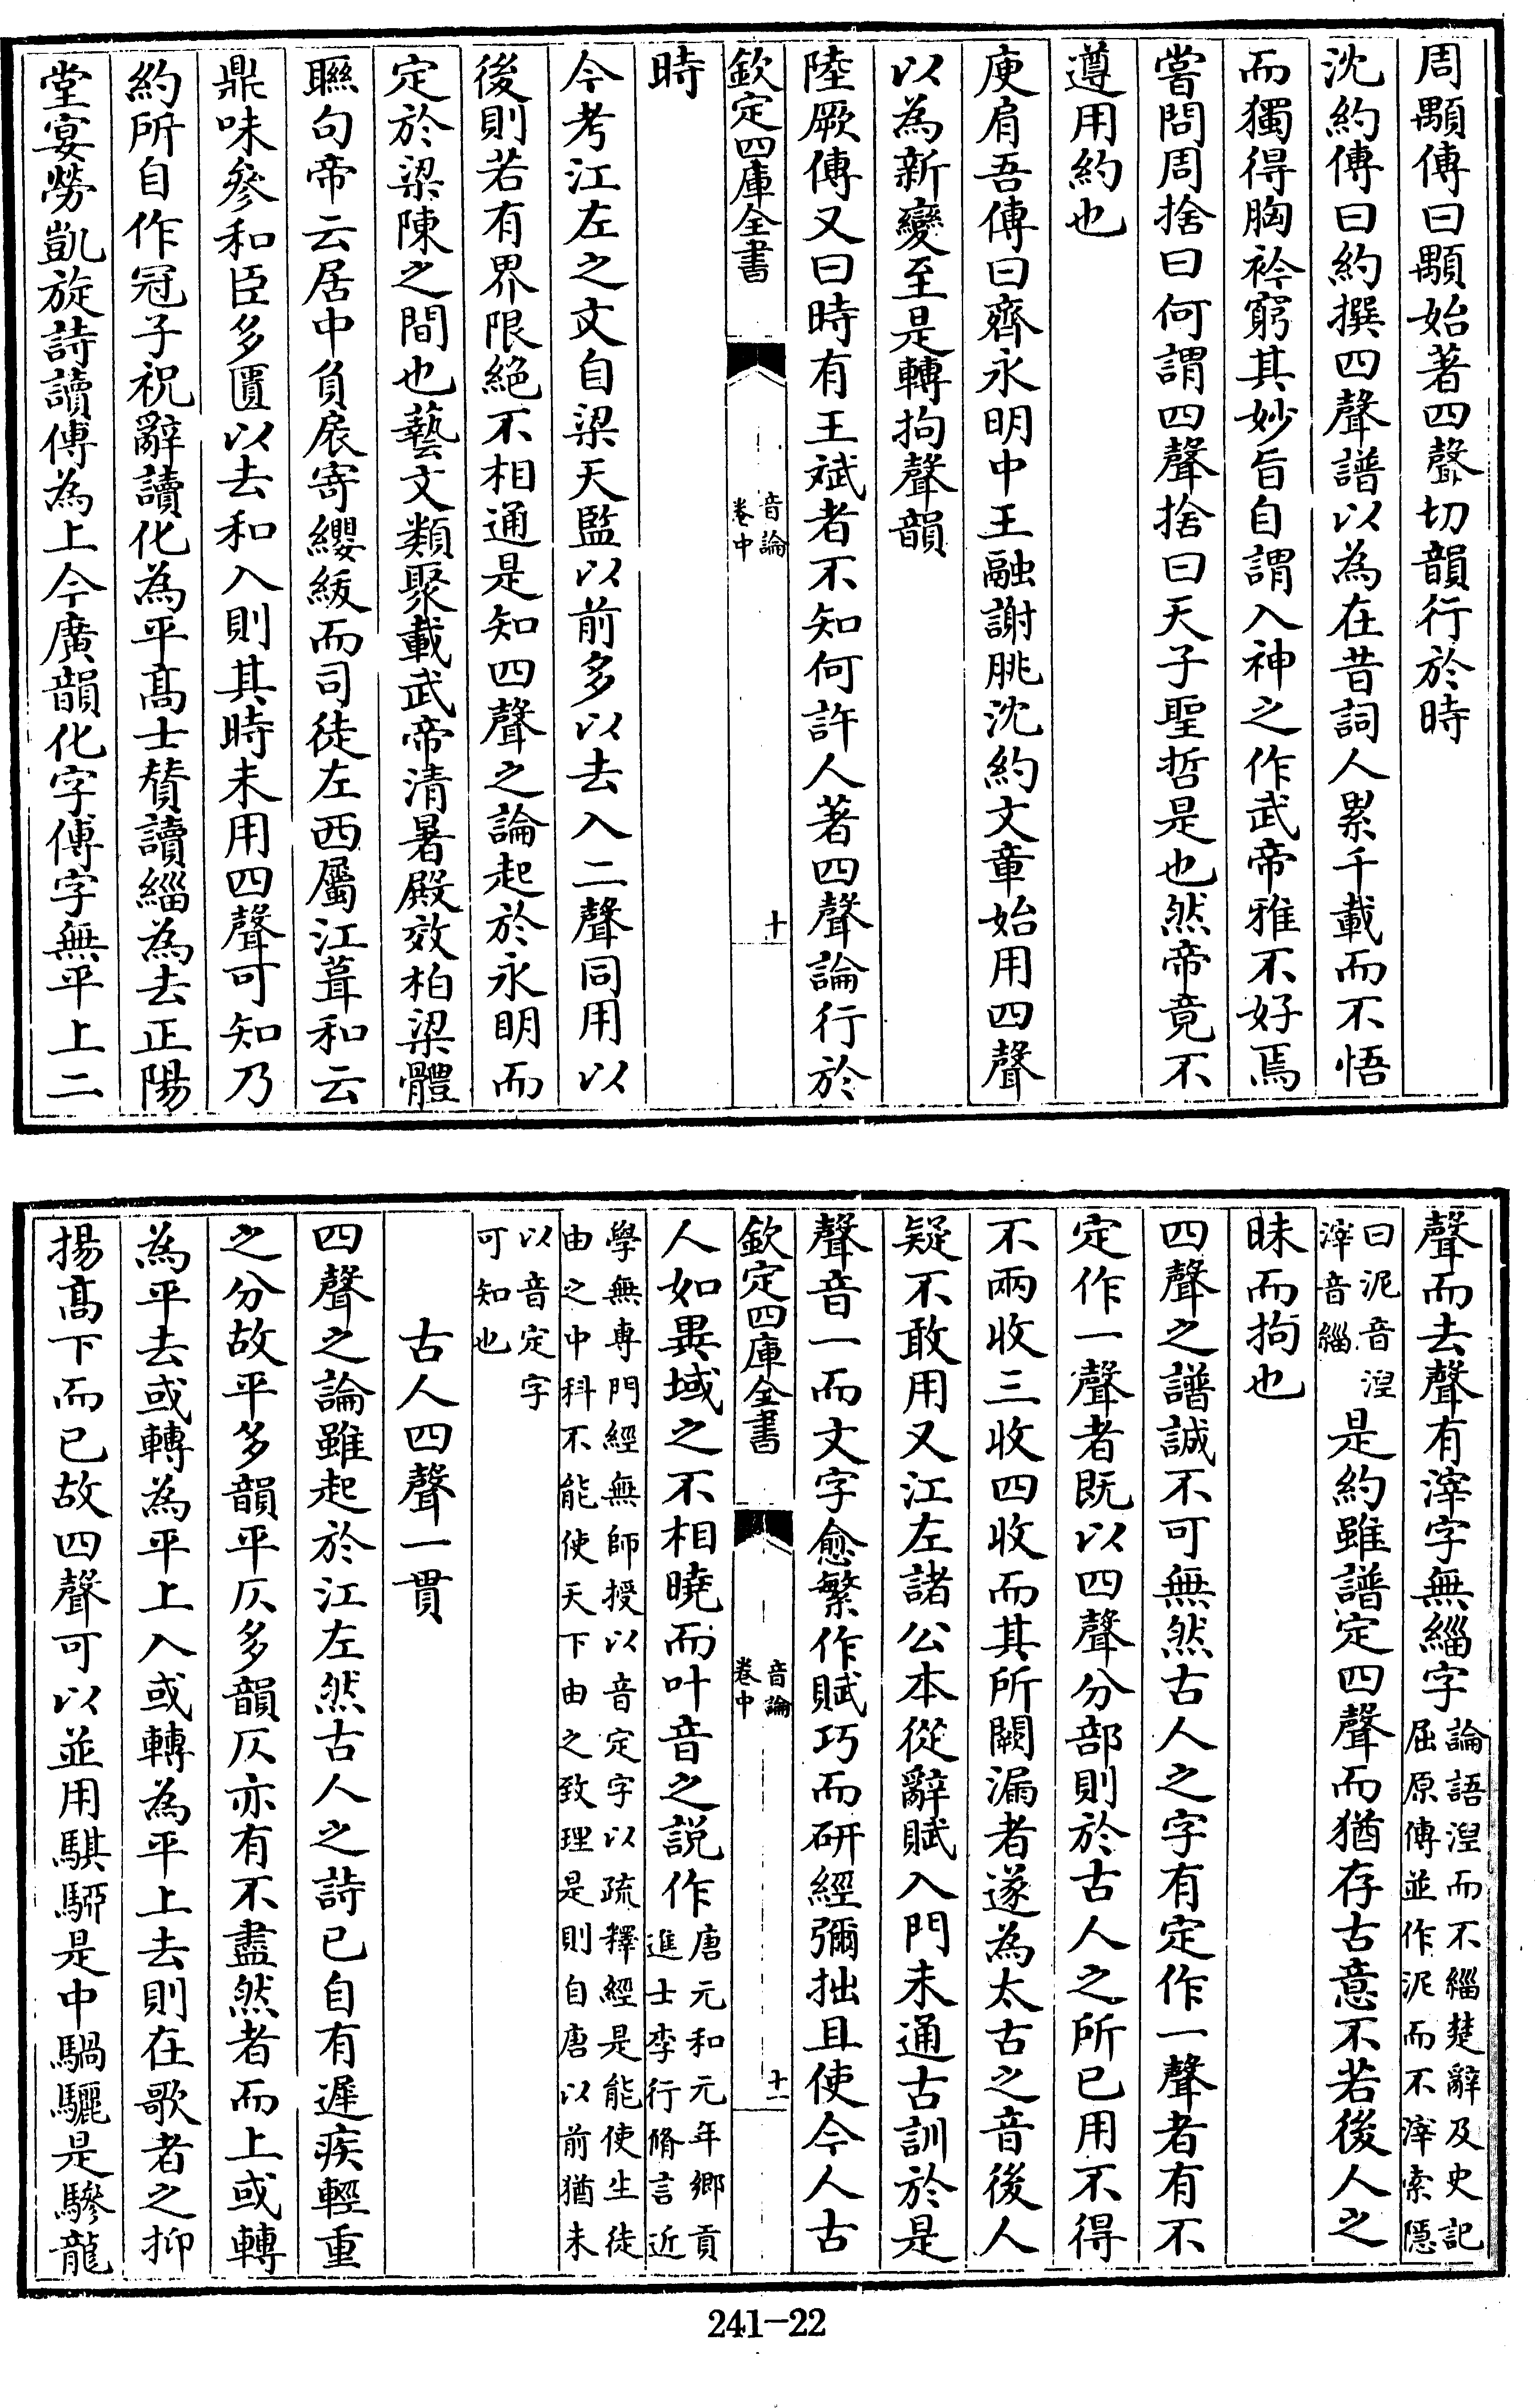 周顒傳曰顒始著四聲切韻行於時
沈約傳曰約撰四聲譜以為在昔詞人累千載而不悟
而獨得胸衿窮其妙旨自謂入神之作武帝雅不好焉
嘗問周捨曰何謂四聲捨曰天子聖哲是也然帝竟不
遵用約也
庾肩吾傳曰齊永明中王融謝朓沈約文章始用四聲
以為新變至是轉拘聲韻
陸厥傳又曰時有王斌者不知何許人著四聲論行於
欽定四庫全書
音論
卷中
十
時
今考江左之文自梁天監以前多以去入二聲同用以
後則若有界限絕不相通是知四聲之論起於永明而
定於梁陳之間也藝文類聚載武帝清暑殿效柏梁體
聯句帝云居中負扆寄纓紱而司徒左西屬江葺和云
鼎味參和臣多匱以去和入則其時未用四聲可知乃
約所自作冠子祝辭讀化為平髙士賛讀緇為去正陽
堂宴勞凱旋詩讀傅為上今廣韻化字傅字無平上二
聲而去聲有滓字無緇字
論語湼而不緇楚辭及史記
屈原傳並作泥而不滓索隠
曰泥音湼
滓音緇
是約雖譜定四聲而猶存古意不若後人之
昧而拘也
四聲之譜誠不可無然古人之字有定作一聲者有不
定作一聲者既以四聲分部則於古人之所已用不得
不兩收三收四收而其所闕漏者遂為太古之音後人
疑不敢用又江左諸公本從辭賦入門未通古訓於是
聲音一而文字愈繁作賦巧而研經彌拙且使今人古
欽定四庫全書
音論
卷中
十一
人如異域之不相曉而叶音之説作
唐元和元年鄉貢
進士李行脩言近
學無專門經無師授以音定字以疏釋經是能使生徒
由之中科不能使天下由之致理是則自唐以前猶未
以音定字
可知也
古人四聲一貫
四聲之論雖起於江左然古人之詩已自有遲疾輕重
之分故平多韻平仄多韻仄亦有不盡然者而上或轉
為平去或轉為平上入或轉為平上去則在歌者之抑
揚髙下而已故四聲可以並用騏駵是中騧驪是驂龍